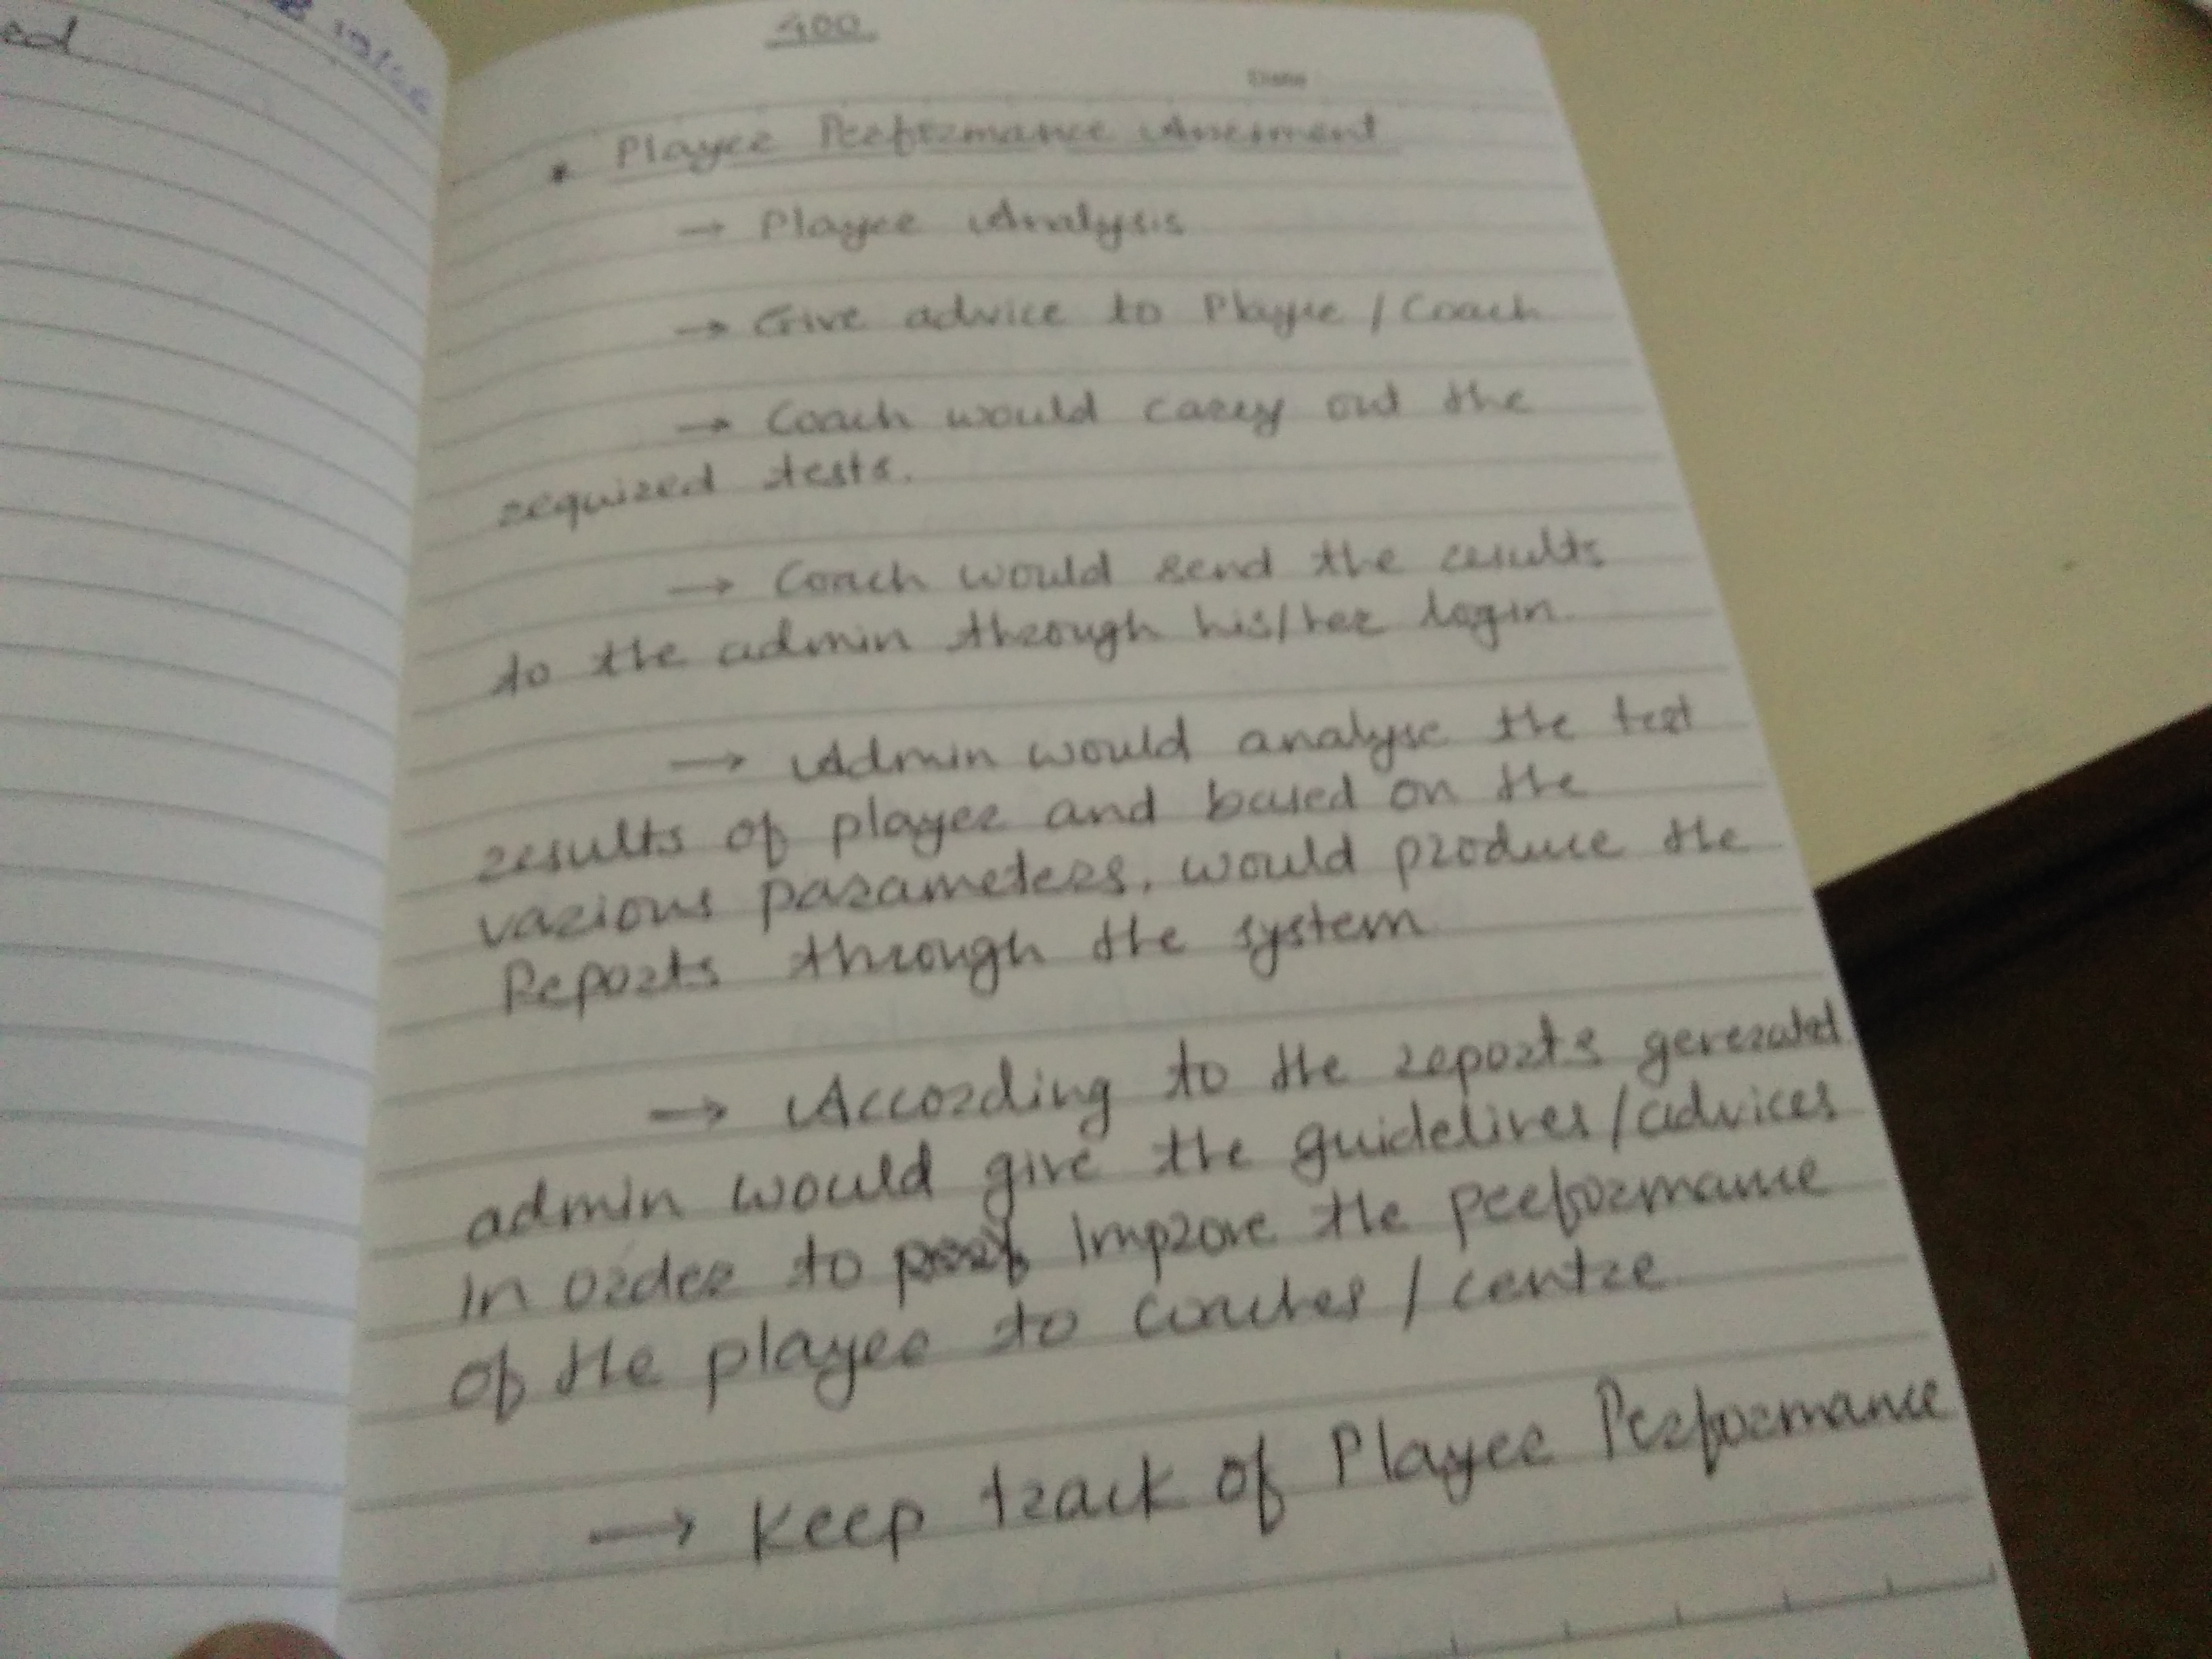 ed
400
Date
• Player Performance Assesment
→ Player Analysis
→ Give advice to Player / Coach
→ Coach would carry out the
required tests.
→ Coach would send the results
to the admin through his/her login.
→ Admin would analyse the test
results of player and based on the
various parameters, would produce the
Reports through the system
→ According to the reports generated
admin would give the guidelines/advices
in order to improve the performance
of the player to coaches / centre
→ Keep track of Player Performance